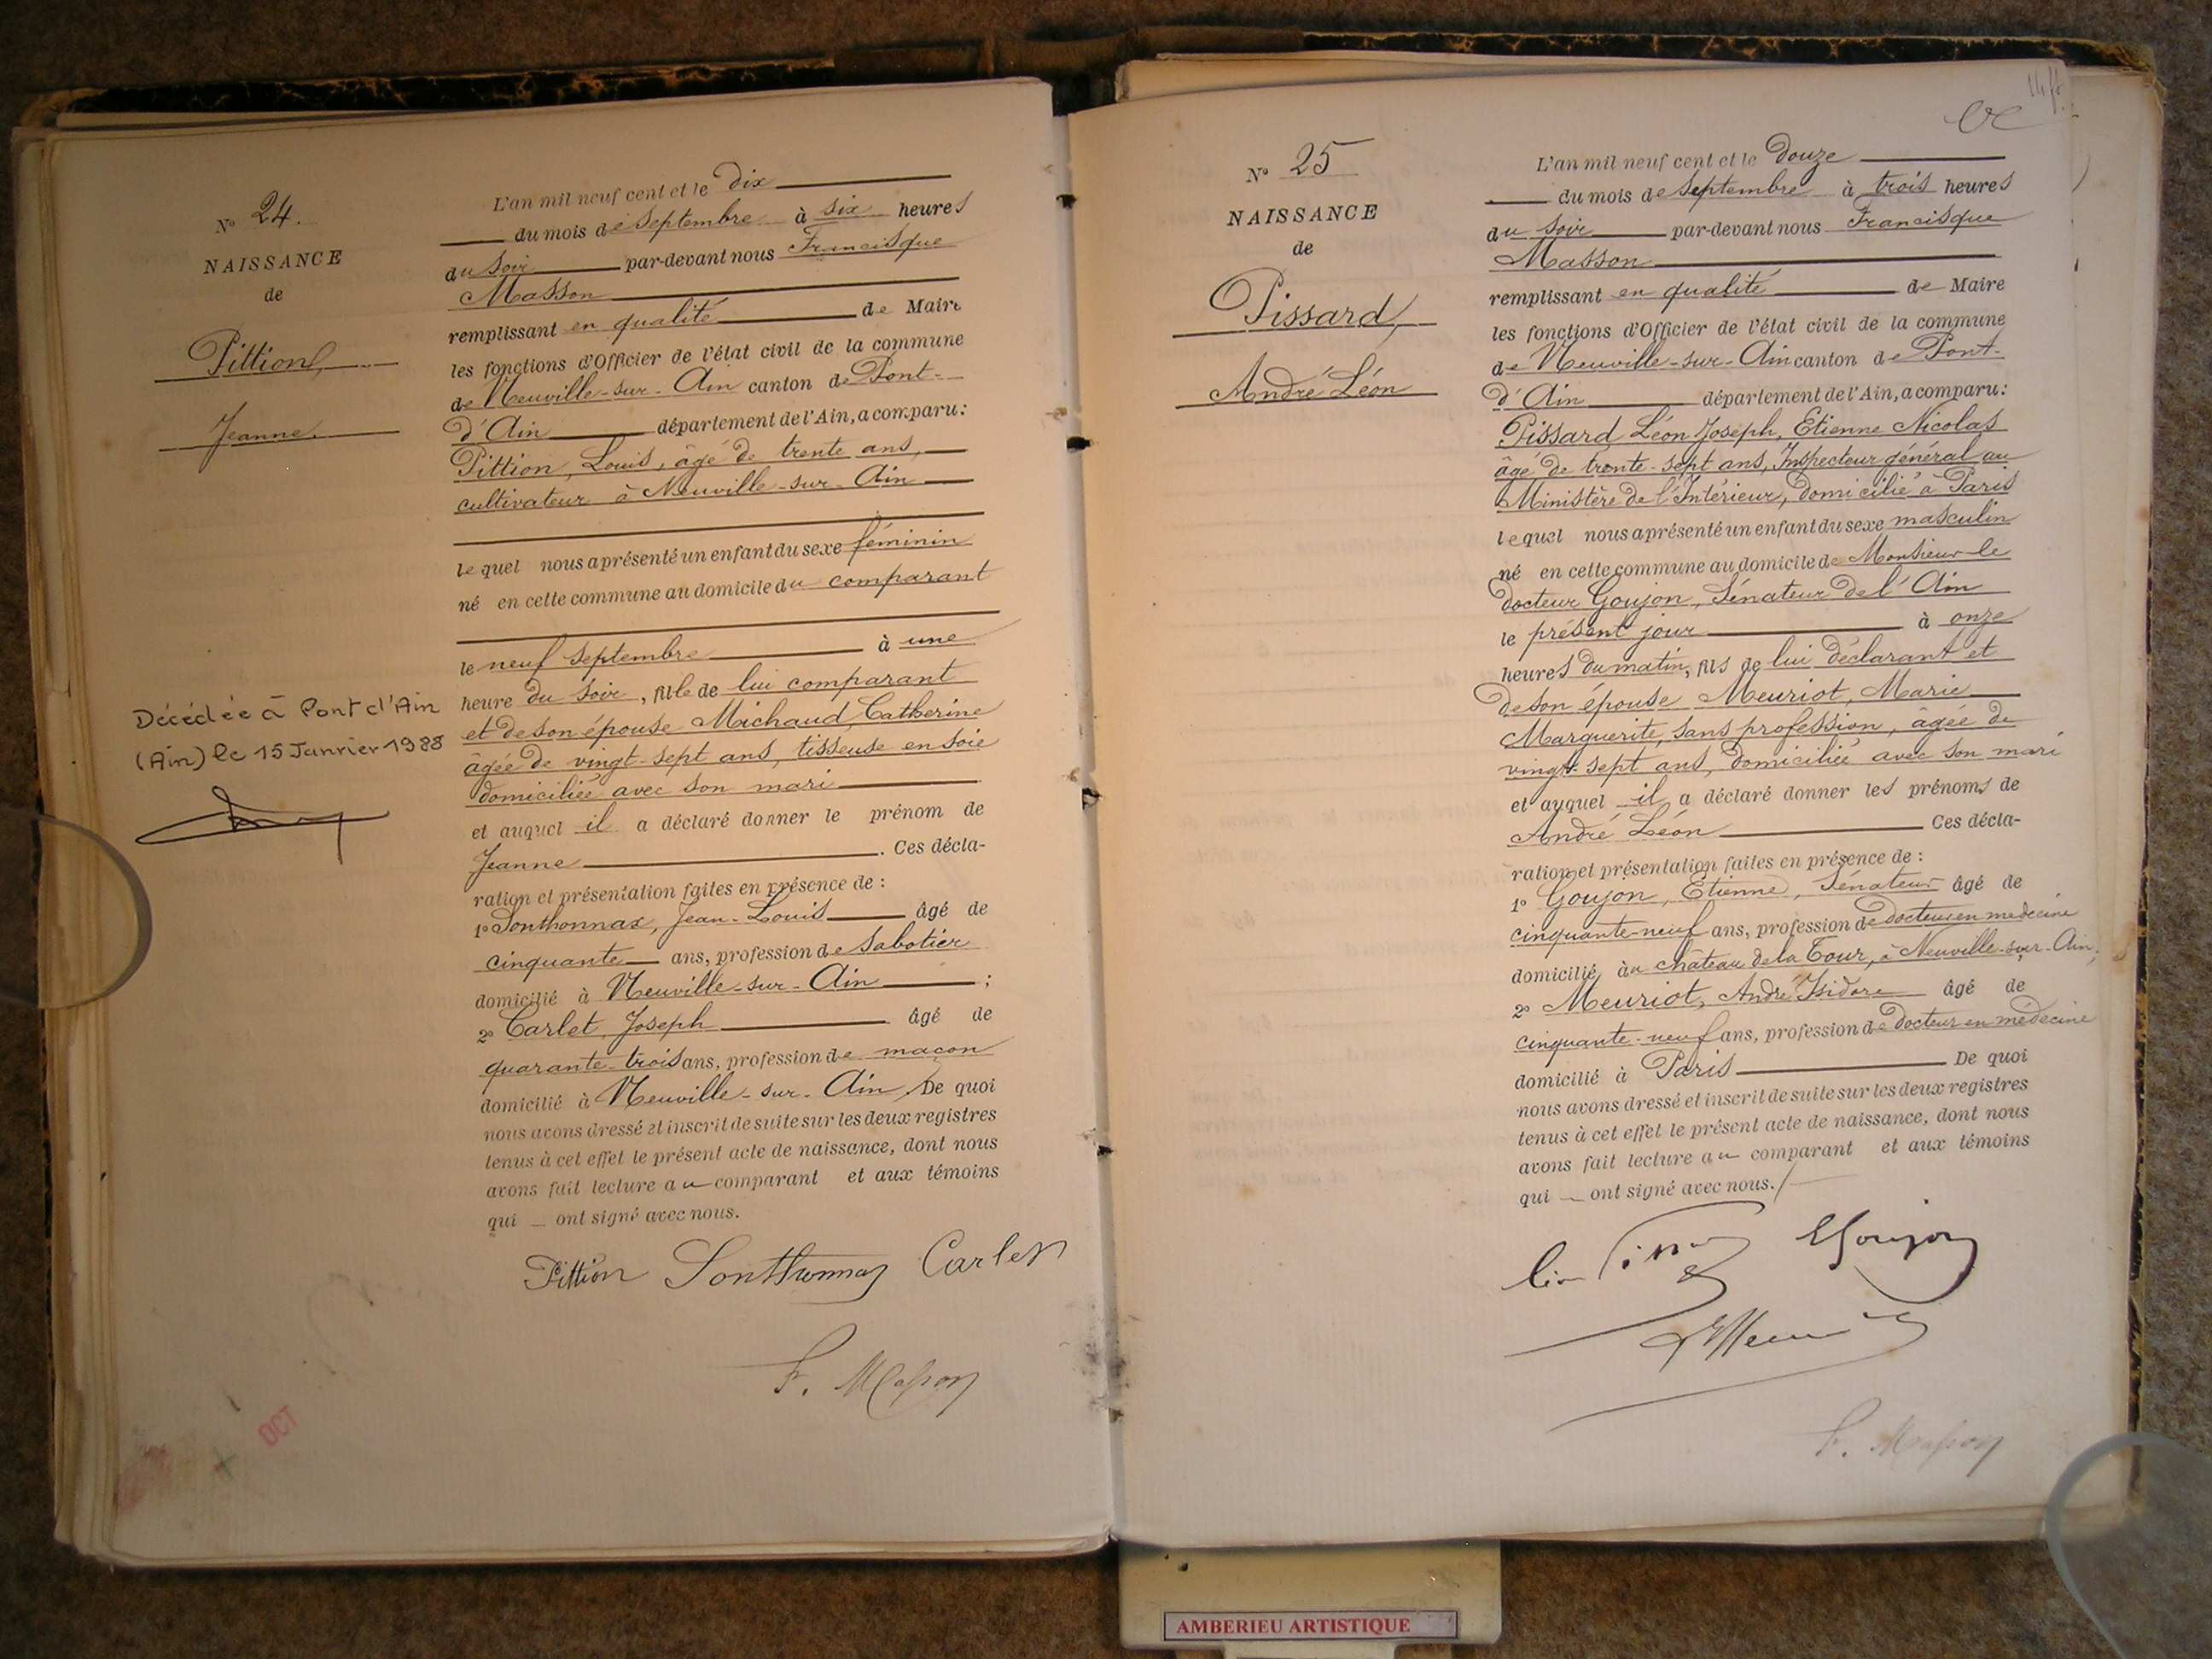 N° 24.
NAISSANCE
de
Pittion,
Jeanne.
Décédée à Pont d'Ain
(Ain) le 15 Janvier 1988
L'an mil neuf cent et le dix
du mois de Septembre à six heures
du soir par-devant nous Francisque
Masson
remplissant en qualité de Maire
les fonctions d'Officier de l'état civil de la commune
de Neuville-sur-Ain canton de Pont-
d'Ain département de l'Ain, a comparu:
Pittion, Louis, âgé de trente ans,
cultivateur à Neuville-sur-Ain
lequel nous a présenté un enfant du sexe féminin
né en cette commune au domicile du comparant
le neuf septembre à une
heure du soir, fille de lui comparant
et de son épouse Michaud, Catherine
âgée de vingt-sept ans, tisseuse en soie
domiciliée avec son mari
et auquel il a déclaré donner le prénom de
Jeanne. Ces décla-
ration et présentation faites en présence de :
1° Sonthonnax, Jean-Louis âgé de
cinquante ans, profession de sabotier
domicilié à Neuville-sur-Ain ;
2° Carlet, Joseph âgé de
quarante-trois ans, profession de maçon
domicilié à Neuville-sur-Ain. De quoi
nous avons dressé et inscrit de suite sur les deux registres
tenus à cet effet le présent acte de naissance, dont nous
avons fait lecture au comparant et aux témoins
qui ont signé avec nous.
Pittion Sonthonnax Carlet
F. Masson
OCT
N° 25
NAISSANCE
de
Pissard,
André Léon
L'an mil neuf cent et le douze
du mois de Septembre à trois heures
du soir par-devant nous Francisque
Masson
remplissant en qualité de Maire
les fonctions d'Officier de l'état civil de la commune
de Neuville-sur-Ain canton de Pont-
d'Ain département de l'Ain, a comparu:
Pissard, Léon Joseph, Etienne Nicolas
âgé de trente-sept ans, Inspecteur général au
Ministère de l'Intérieur, domicilié à Paris
lequel nous a présenté un enfant du sexe masculin
né en cette commune au domicile de Monsieur le
docteur Goujon, Sénateur de l'Ain
le présent jour à onze
heures du matin, fils de lui déclarant et
de son épouse Meuriot, Marie
Marguerite, sans profession, âgée de
vingt-sept ans, domiciliée avec son mari
et auquel il a déclaré donner les prénoms de
André Léon Ces décla-
ration et présentation faites en présence de :
1° Goujon, Etienne, Sénateur âgé de
cinquante-neuf ans, profession de docteur en médecine
domicilié au château de la Tour, à Neuville-sur-Ain;
2° Meuriot, André Isidore âgé de
cinquante-neuf ans, profession de Docteur en médecine
domicilié à Paris De quoi
nous avons dressé et inscrit de suite sur les deux registres
tenus à cet effet le présent acte de naissance, dont nous
avons fait lecture au comparant et aux témoins
qui ont signé avec nous.
EGoujon
F. Masson
AMBERIEU ARTISTIQUE